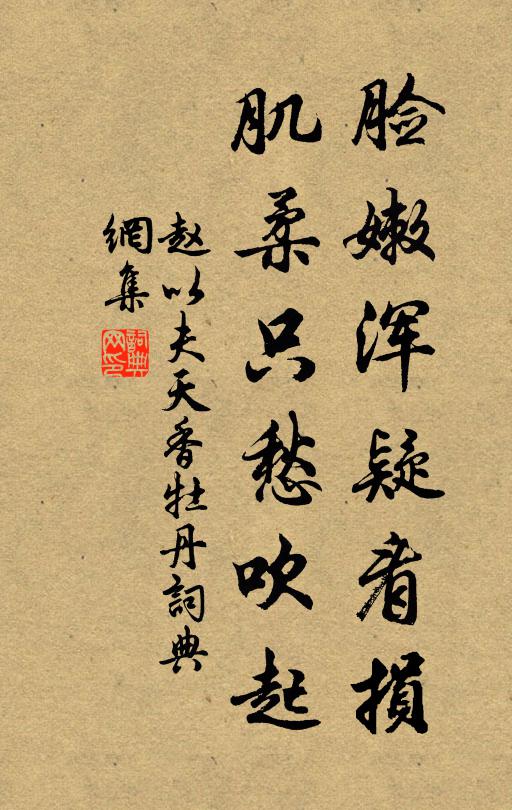 脸嫩浑疑看損
肌柔只愁吹起
赵以夫天香牡丹詞典
網集
詞典
网印